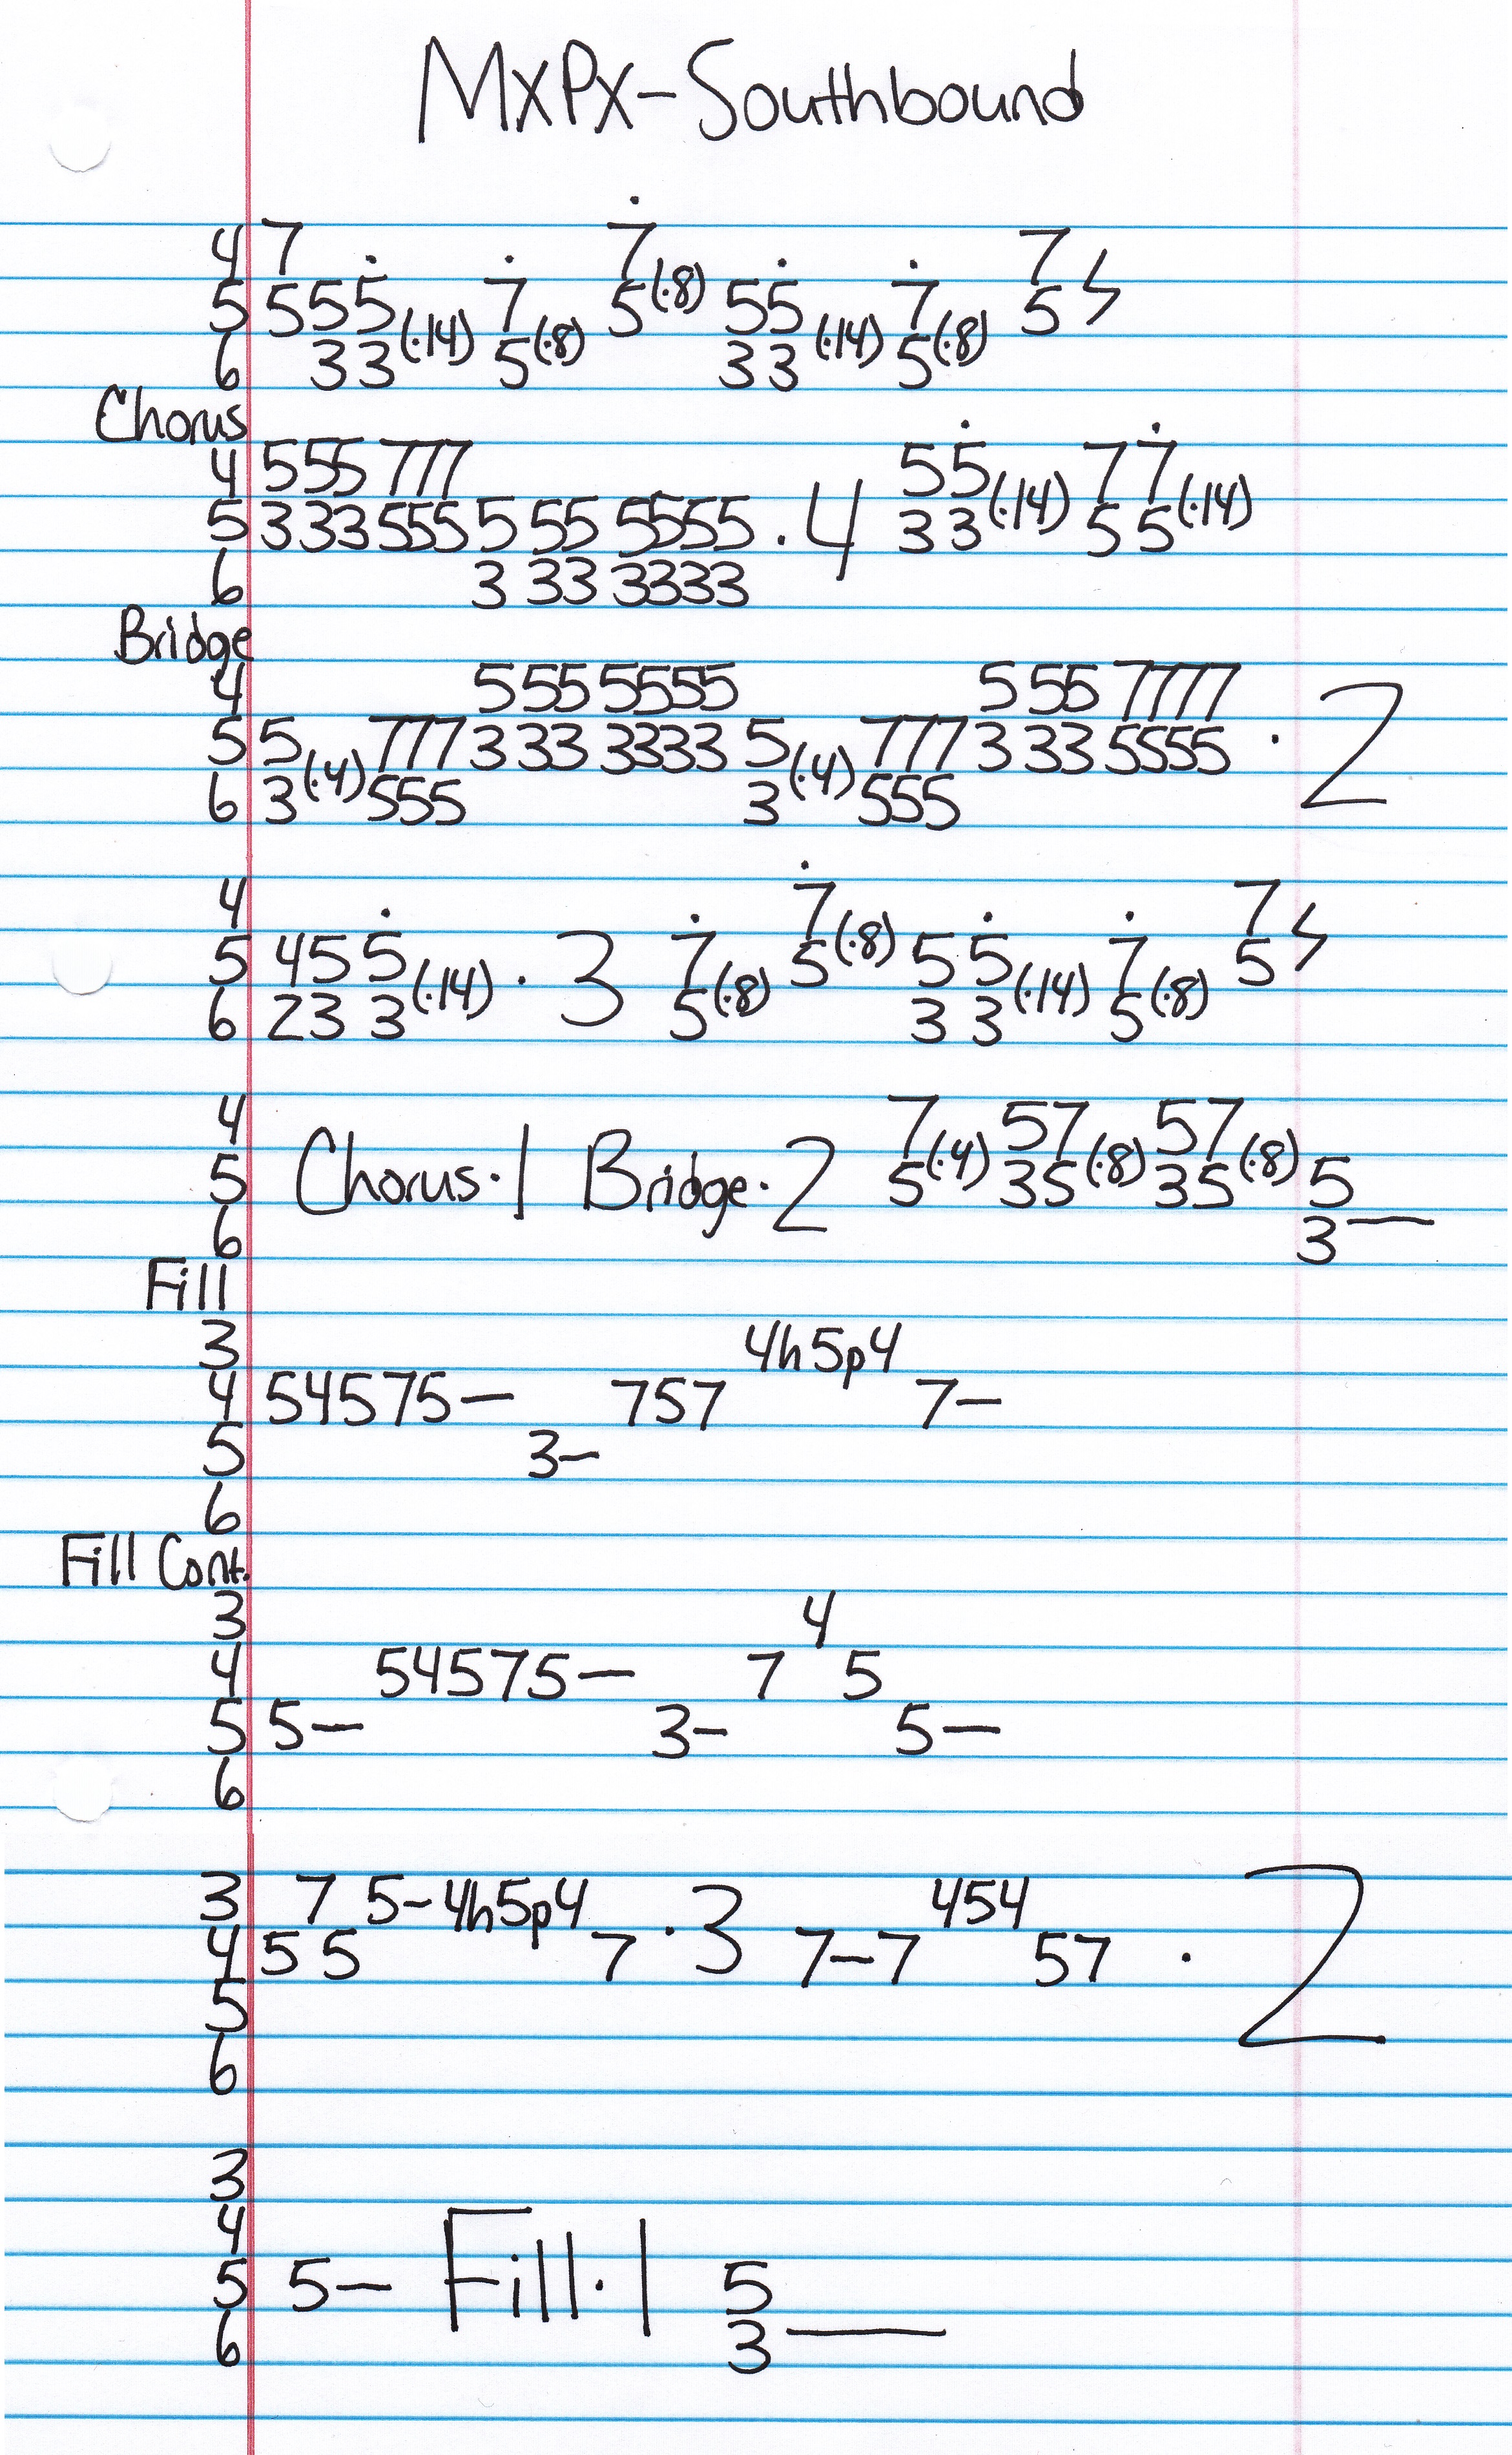 MXPX-Southbound
4 7 7 7
5 555(·14) 7 5(·8) 55(·14) 7 5 ϟ
6 33 5(·8) 33 5(·8)
Chorus
4 555 777 55(·14) 77(·14)
5 333 555 5 55 5555 · 4 33 55
6 3 33 3333
Bridge
4 5 555 55555 5 555 7777
5 5(·4) 777 3 333 3333 5(·4) 777 3 333 5555 · 2
6 3 555 3 555
4 7 7
5 455(·14) · 3 7 5(·8) 55(·14) 7 5 ϟ
6 233 5(·8) 33 5(·8)
4 7(·4) 57(·8) 57(·8)
5 Chorus·1 Bridge·2 5 35 35 5
6 3—
Fill
3 4h5p4
4 54575— 757 7—
5 3—
6
Fill Cont.
3 4
4 54575— 7 5
5 5— 3— 5—
6
3 7 5-4h5p4 454
4 5 5 7 ·3 7-7 57 · 2
5
6
3
4
5 5— Fill·1 5
6 3—